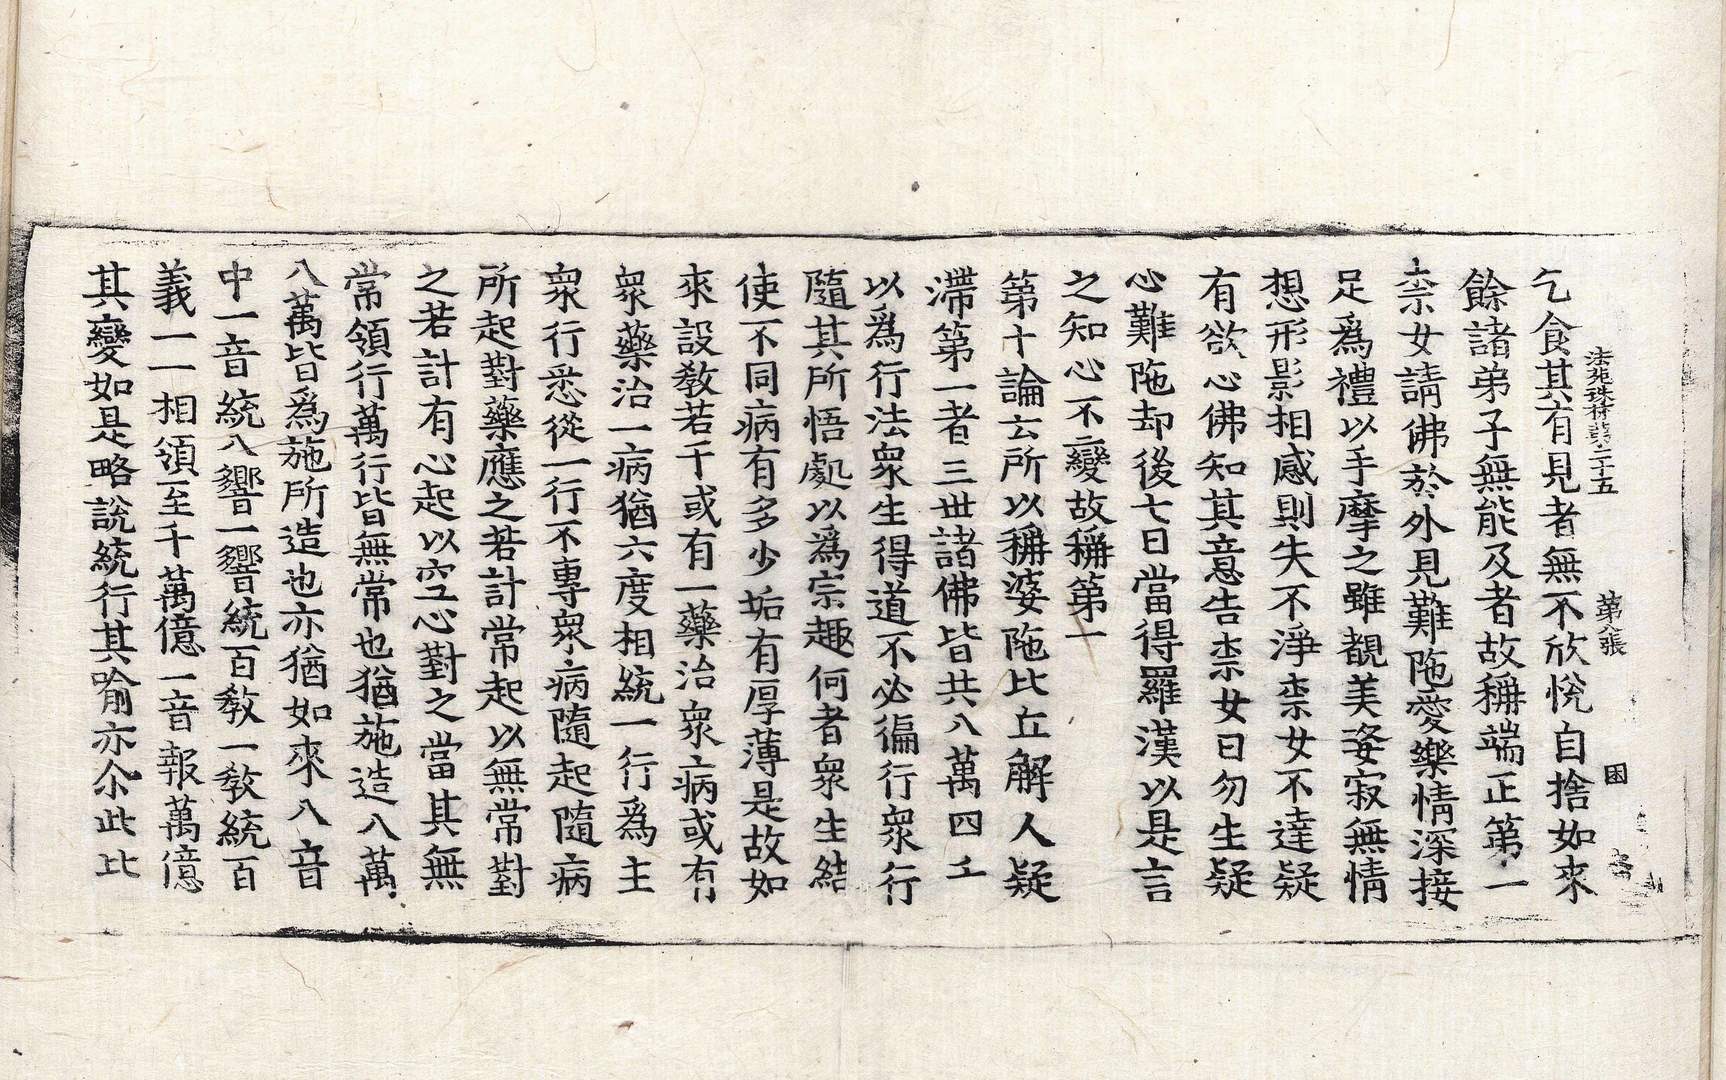 法苑珠林第二十五 第八張 困
乞食其有見者無不欣悅自捨如來
餘諸弟子無能及者故稱端正第一
柰女請佛於外見難陁愛樂情深接
足爲禮以手摩之雖覩美姿寂無情
想形影相感則失不淨柰女不達疑
有欲心佛知其意告柰女曰勿生疑
心難陁却後七日當得羅漢以是言
之知心不變故稱第一
第十論云所以稱婆陁比丘解人疑
滯第一者三世諸佛皆共八萬四千
以爲行法衆生得道不必徧行衆行
隨其所悟處以爲宗趣何者衆生結
使不同病有多少垢有厚薄是故如
來設敎若千或有一藥治衆病或有
衆藥治一病猶六度相統一行爲主
衆行悉從一行不專衆病隨起隨病
所起對藥應之若計常起以無常對
之若計有心起以空心對之當其無
常領行萬行皆無常也猶施造八萬
八萬皆爲施所造也亦猶如來八音
中一音統八響一響統百敎一敎統百
義一一相領至千萬億一音報萬億
其變如是略說統行其喻亦尒此比